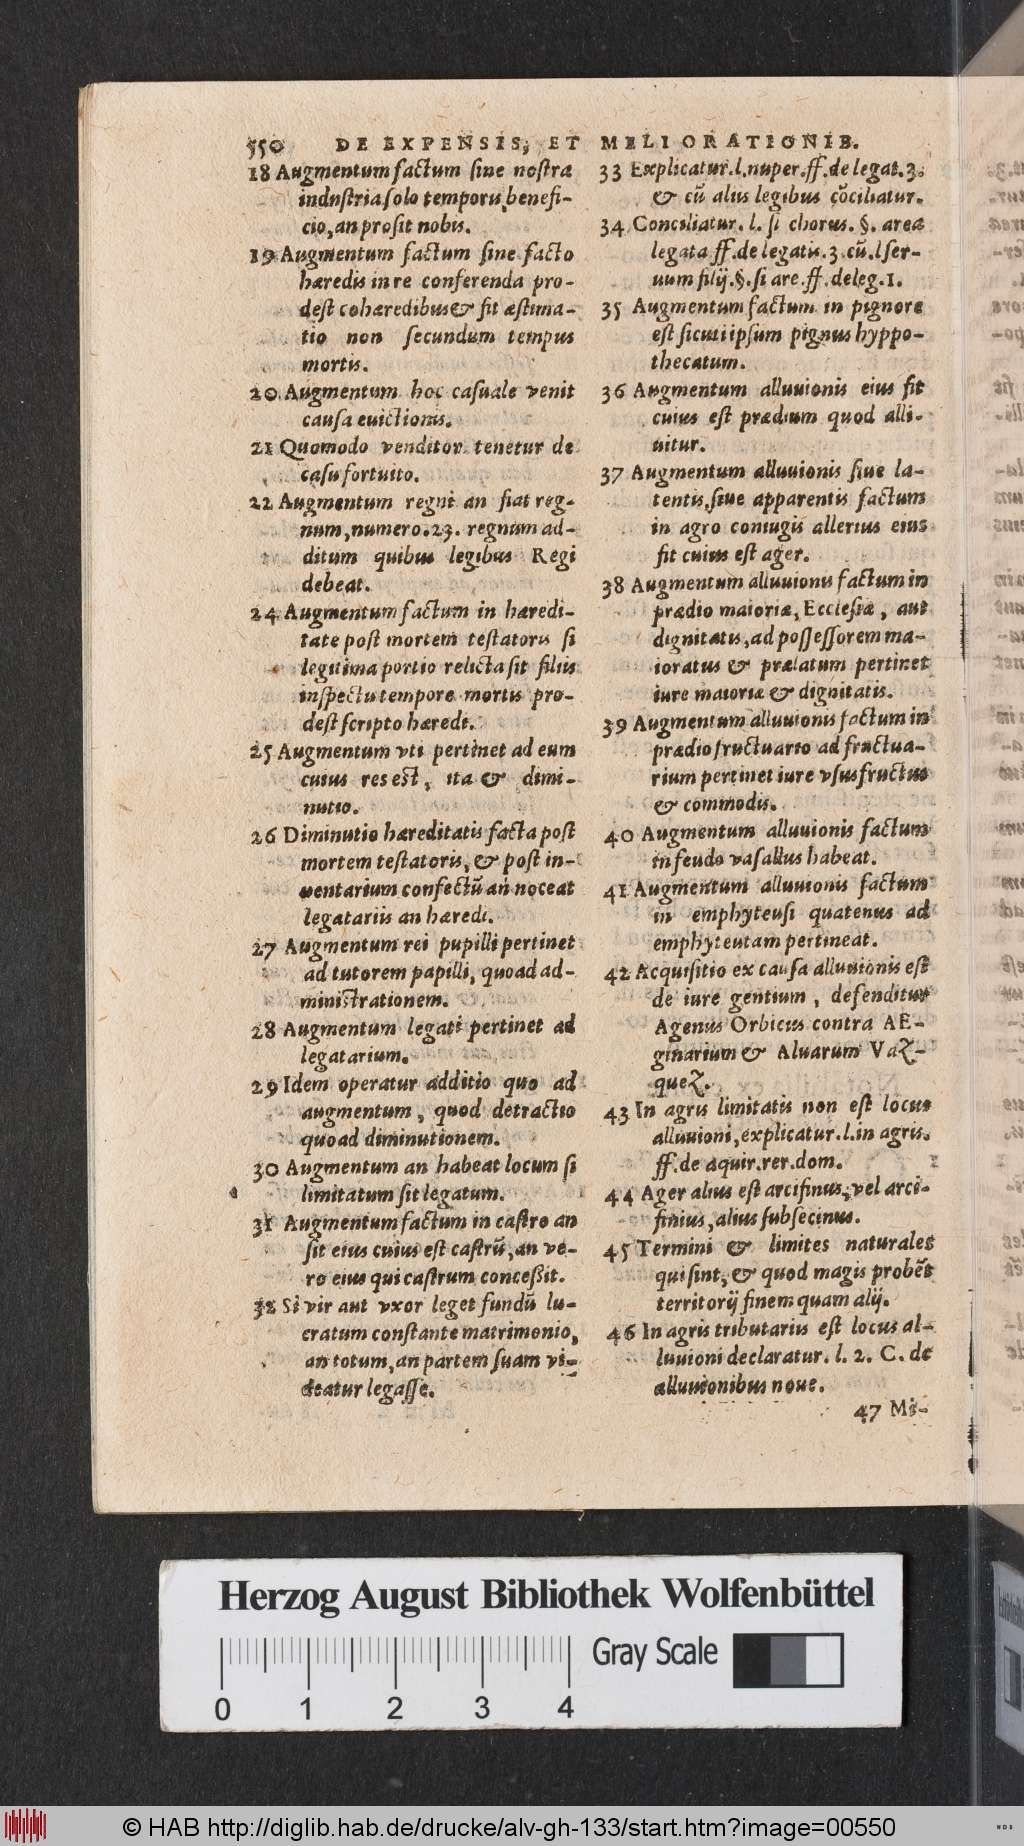 550 DE EXPENSIS, ET MELIORATIONIB.
18 Augmentum factum sine nostra
industria solo temporis benefi-
cio, an prosit nobis.
19 Augmentum factum sine facto
hæredis in re conferenda pro-
dest cohæredibus & fit æstima-
tio non secundum tempus
mortis.
20 Augmentum hoc casuale venit
causa euictionis.
21 Quomodo venditor tenetur de
casu fortuito.
22 Augmentum regni an fiat reg-
num, numero.23. regnum ad-
ditum quibus legibus Regi
debeat.
24 Augmentum factum in hæredi-
tate post mortem testatoris si
legitima portio relicta sit filiis
inspectu tempore mortis pro-
dest scripto hæredi.
25 Augmentum vti pertinet ad eum
cuius res est, ita & dimi-
nutio.
26 Diminutio hæreditatis facta post
mortem testatoris, & post in-
uentarium confectũ an noceat
legatariis an hæredi.
27 Augmentum rei pupilli pertinet
ad tutorem papilli, quoad ad-
ministrationem.
28 Augmentum legati pertinet ad
legatarium.
29 Idem operatur additio quo ad
augmentum, quod detractio
quoad diminutionem.
30 Augmentum an habeat locum si
limitatum sit legatum.
31 Augmentum factum in castro an
sit eius cuius est castrũ, an ve-
ro eius qui castrum concessit.
32 Si vir aut vxor leget fundũ lu-
cratum constante matrimonio,
an totum, an partem suam vi-
deatur legasse.
33 Explicatur.l.nuper.ff.de legat.3.
& cũ aliis legibus cõciliatur.
34 Conciliatur. l. si chorus. §. area
legata ff.de legatis.3.cũ.l ser-
uum filij.§.si are.ff.deleg.1.
35 Augmentum factum in pignore
est sicuti ipsum pignus hyppo-
thecatum.
36 Augmentum alluuionis eius fit
cuius est prædium quod alli-
uitur.
37 Augmentum alluuionis siue la-
tentis, siue apparentis factum
in agro coniugis allerius eius
fit cuius est ager.
38 Augmentum alluuionis factum in
prædio maioriæ, Ecclesiæ, aut
dignitatis, ad possessorem ma-
ioratus & prælatum pertinet
iure maioriæ & dignitatis.
39 Augmentum alluuionis factum in
prædio fructuario ad fructua-
rium pertinet iure vsusfructus
& commodis.
40 Augmentum alluuionis factum
in feudo vasallus habeat.
41 Augmentum alluuionis factum
in emphyteusi quatenus ad
emphyteutam pertineat.
42 Acquisitio ex causa alluuionis est
de iure gentium, defenditur
Agenus Orbicus contra AE-
ginarium & Aluarum Vaz-
quez.
43 In agris limitatis non est locus
alluuioni, explicatur.l.in agris.
ff.de aquir.rer.dom.
44 Ager alius est arcifinus, vel arci-
finius, alius subsecinus.
45 Termini & limites naturales
qui sint, & quod magis probẽt
territorij finem quam alij.
46 In agris tributariis est locus al-
luuioni declaratur. l. 2. C. de
alluuionibus noue.
47 Mi-
Herzog August Bibliothek Wolfenbüttel
Gray Scale
0 1 2 3 4
© HAB http://diglib.hab.de/drucke/alv-gh-133/start.htm?image=00550